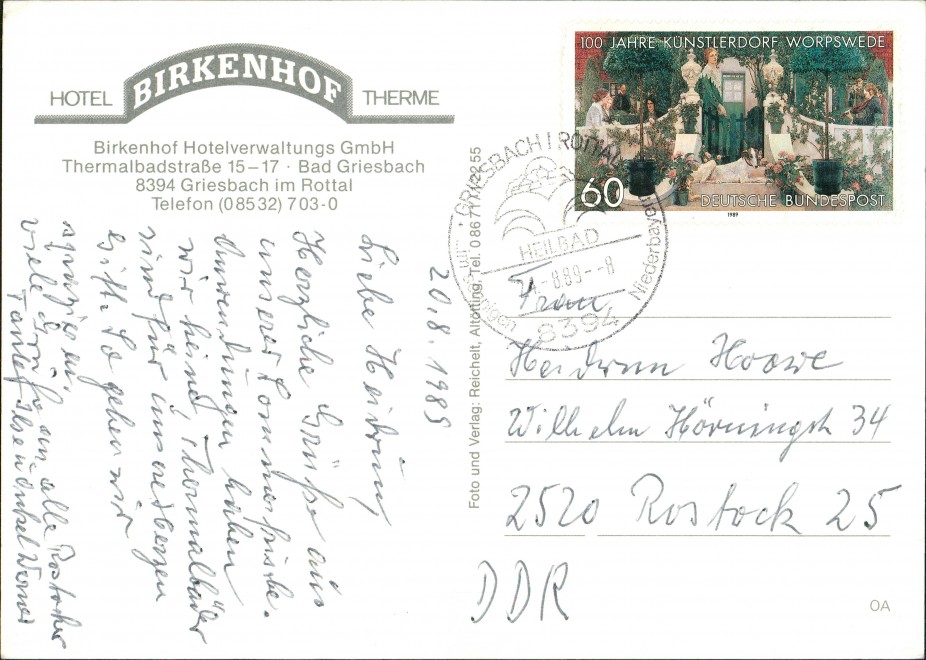 HOTEL BIRKENHOF THERME
Birkenhof Hotelverwaltungs GmbH
Thermalbadstraße 15–17 · Bad Griesbach
8394 Griesbach im Rottal
Telefon (08532) 703-0
20.8.1989
Liebe Heidrun,
Herzliche Grüße aus
unserer Sommerfrische.
Anwendungen haben
wir keine, Thermalbäder
sind für unsere Herzen
Gift. So gehen wir
spazieren.
Viele Grüße an alle Rostocker
Tante Ilse u. Onkel Werner
Foto und Verlag: Reichelt, Altötting, Tel. 08671/12255
100 JAHRE KÜNSTLERDORF WORPSWEDE
60 DEUTSCHE BUNDESPOST
1989
GRIESBACH I ROTTAL
HEILBAD
.8.89--8
Niederbay
8394
Frau
Heidrun
Wilhelm Hörningstr 34
2520 Rostock 25
DDR
OA